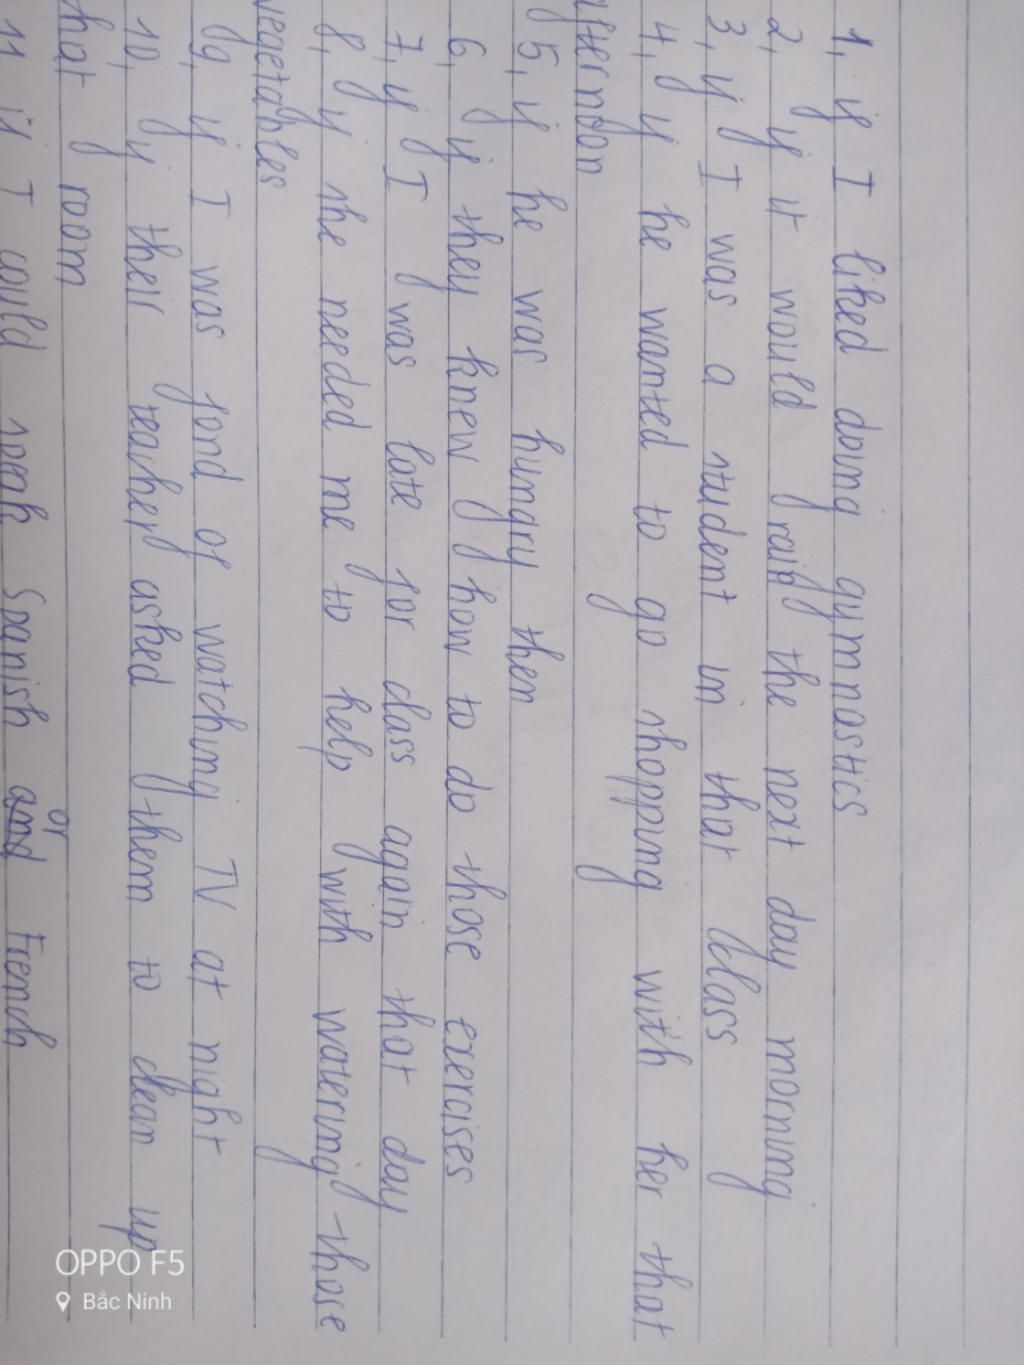 1, if I liked doing gymnastics
2, if it would rain the next day morning
3, if I was a student in that class
4, if he wanted to go shopping with her that
afternoon
5, if he was hungry then
6, if they knew how to do those exercises
7, if I was late for class again that day
8, if she needed me to help with watering those
vegetables
9, if I was fond of watching TV at night
10, if their teacher asked them to clean up
that room
or
11 if I could speak Spanish and French
OPPO F5
Bắc Ninh